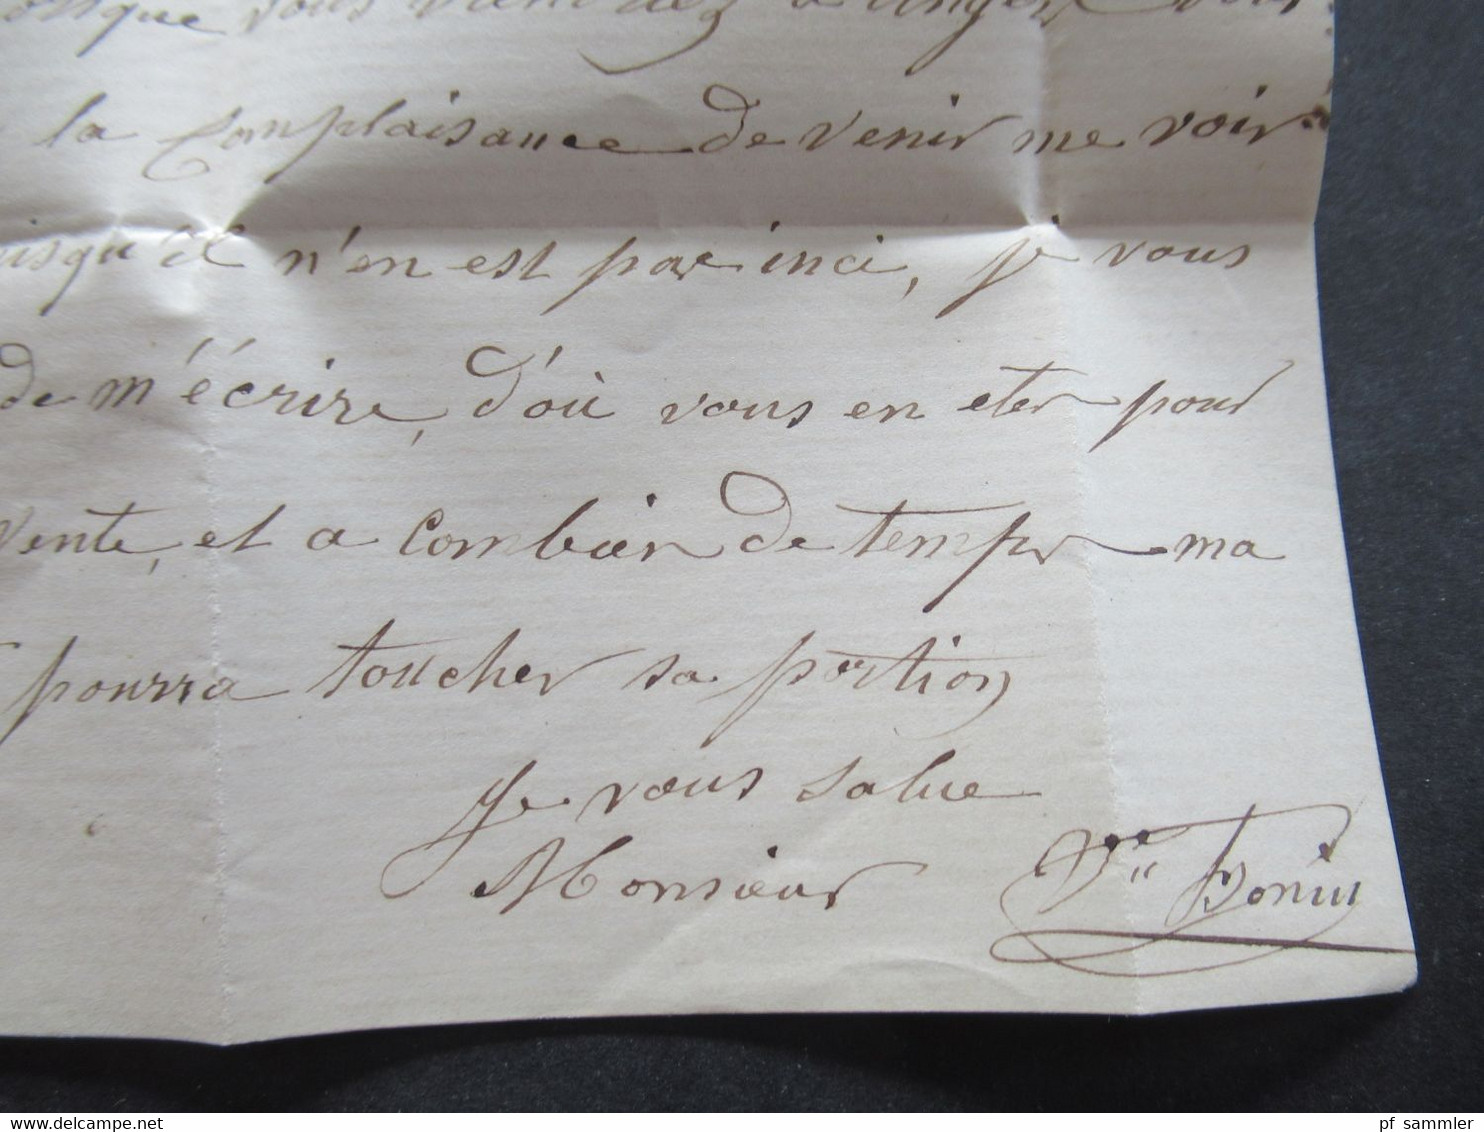 vous viendrez à Angers vous
la Complaisance de venir me voir
puisqu'il n'en est pas inci, je vous
de m'écrire, d'où vous en etes pour
vente, et a Combien de temps ma
pourra toucher sa portion
Je vous salue
Monsieur Vve Bonin
pf_sammler